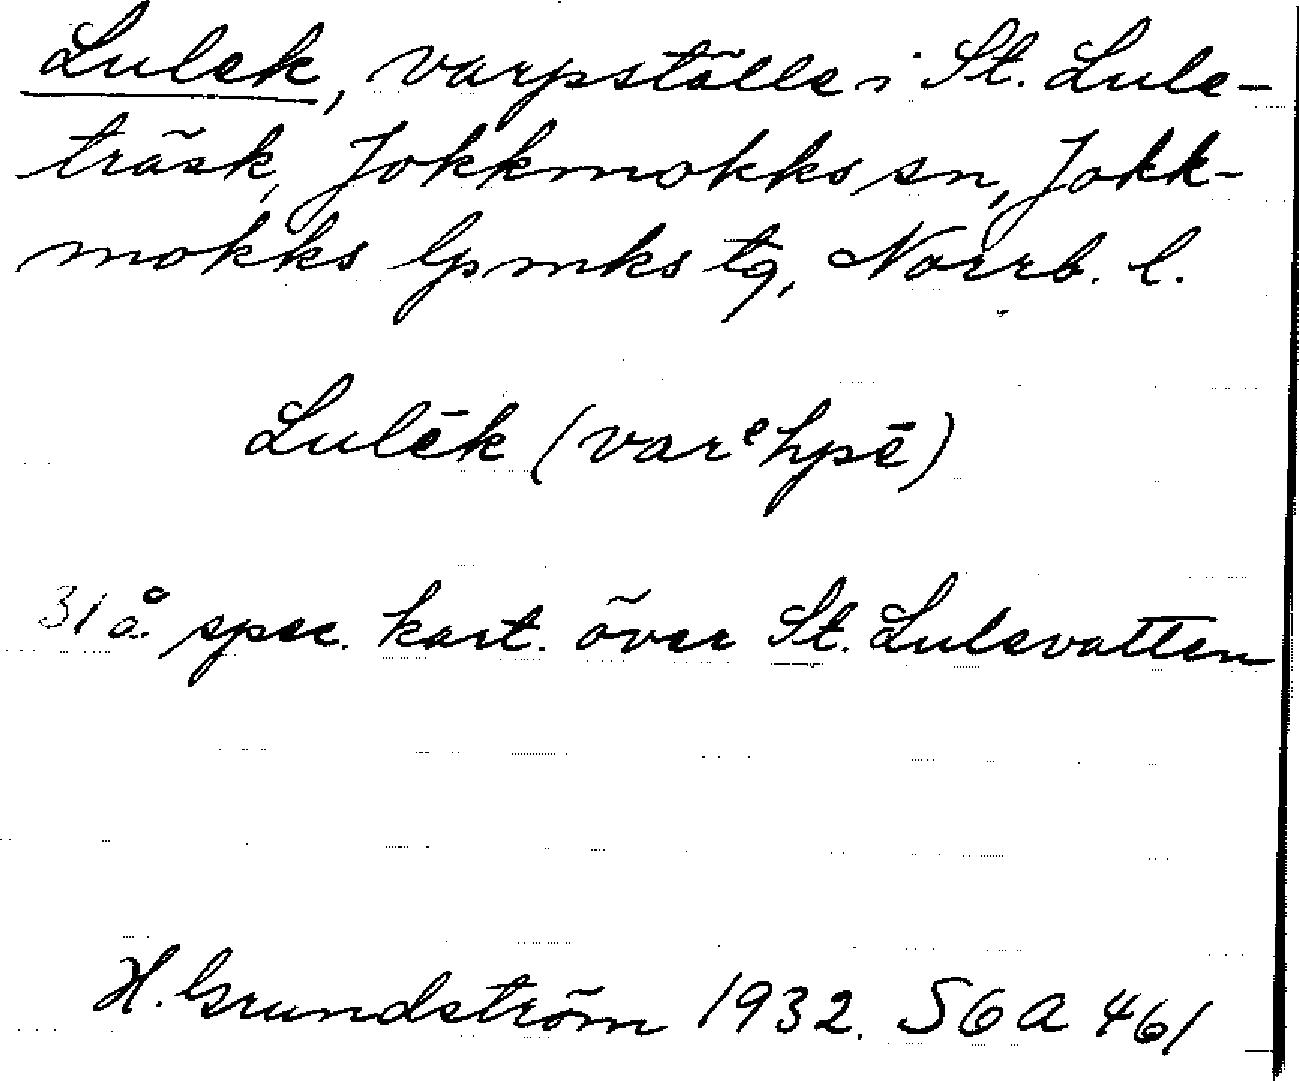 Lulek, varpställe i St. Lule-
träsk, Jokkmokks sn, Jokk-
mokks lpmks tg, Norrb. l.
Lulēk (varᵉhpē)
31 å. spec. kart. över St. Lulevatten
H. Grundström 1932. SGA 461